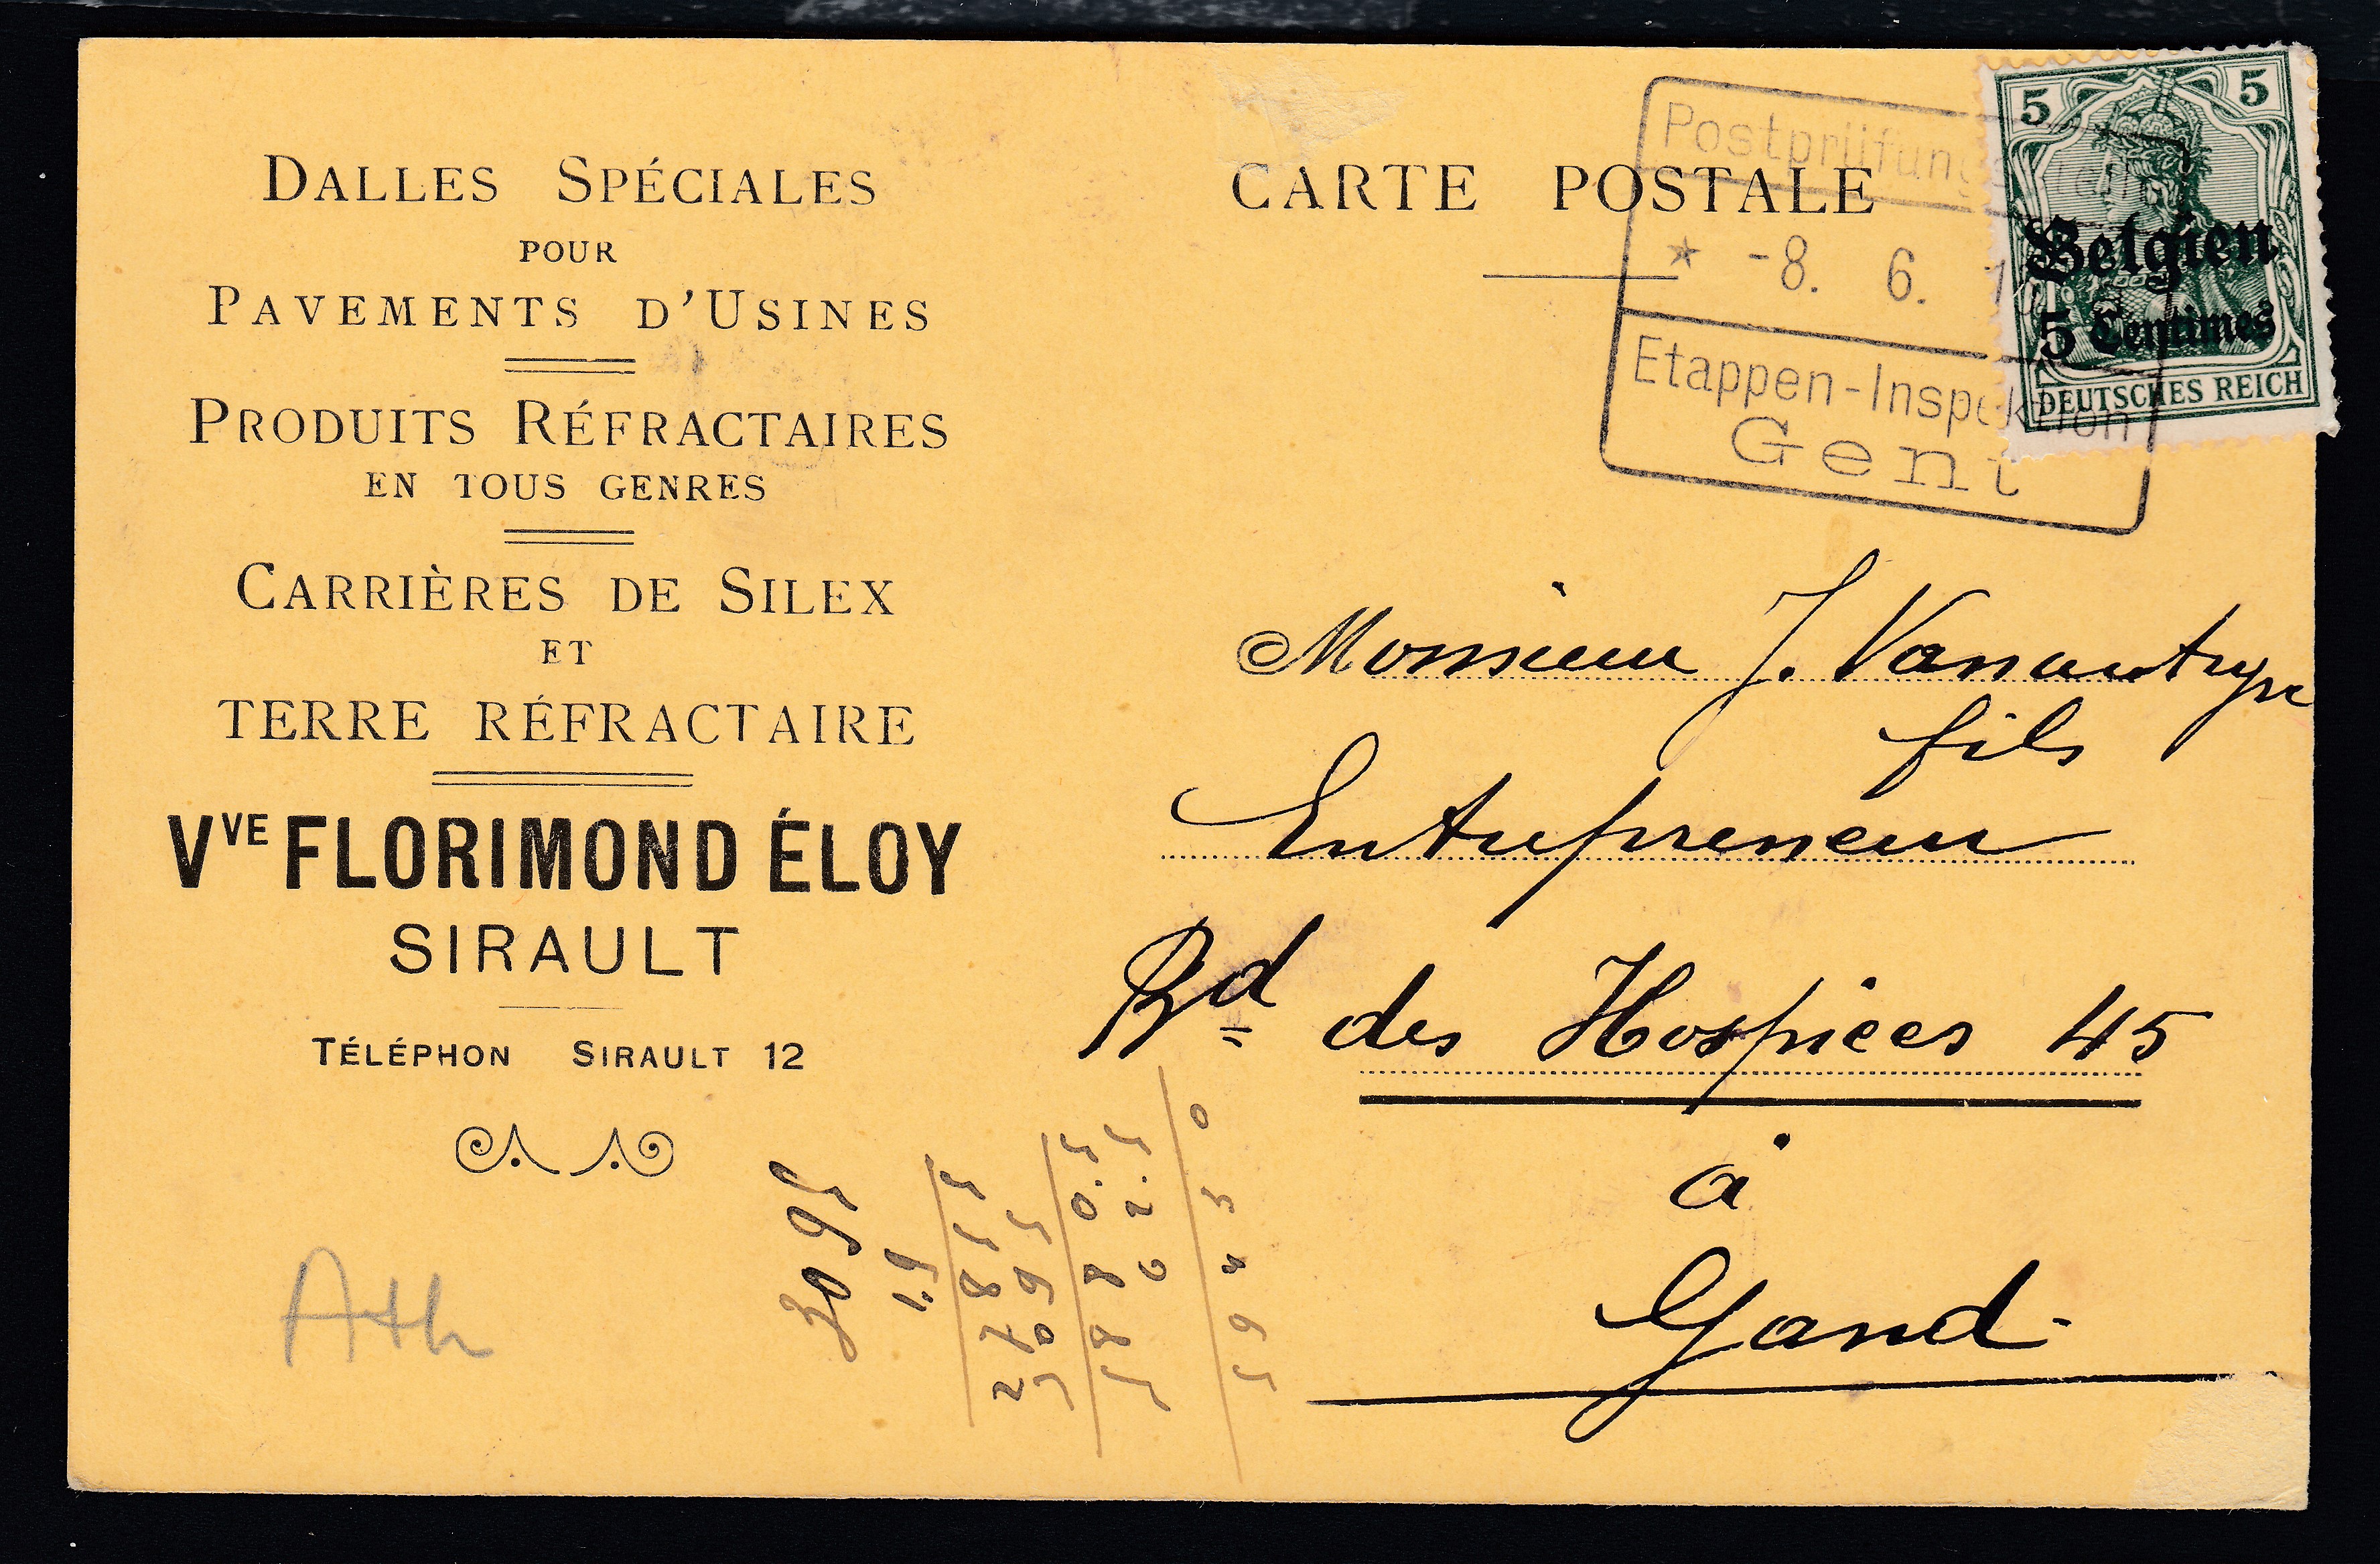 DALLES SPÉCIALES
POUR
PAVEMENTS D'USINES
PRODUITS RÉFRACTAIRES
EN TOUS GENRES
CARRIÈRES DE SILEX
ET
TERRE RÉFRACTAIRE
VVE FLORIMOND ÉLOY
SIRAULT
TÉLÉPHON SIRAULT 12
Ath
CARTE POSTALE
Postprüfungs
* -8. 6. 1
Etappen-Inspektion
Gent
5 5
Belgien
5 Centimes
DEUTSCHES REICH
Monsieur J.
fils
Entrepreneur
Bd des Hospices 45
à
Gand
3095
1.9